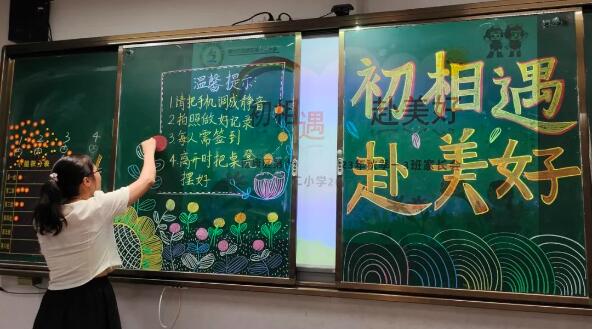 温馨提示:
1请把手机调成静音
2拍照做好记录
3每人需签到
4.离开时把桌凳
摆好
初相遇
赴美好
初相遇 赴美好
班家长会
3 4